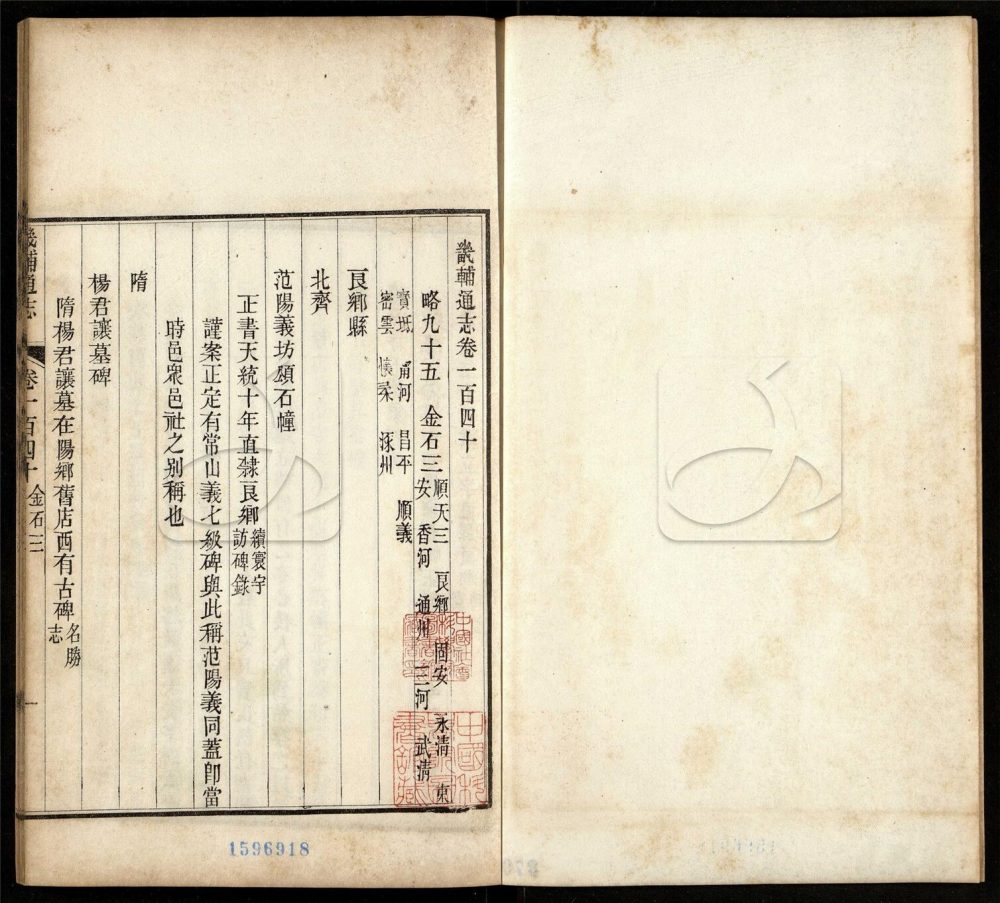 畿輔通志卷一百四十
略九十五 金石三 順天三 良鄉 固安 永清 東
安 香河 通州 三河 武清
寶坻 甯河 昌平 順義
密雲 懷柔 涿州
良鄉縣
北齊
范陽義坊頌石幢
正書天統十年直隸良鄉 續寰宇
訪碑錄
謹案正定有常山義七級碑與此稱范陽義同蓋卽當
時邑眾邑社之别稱也
隋
楊君讓墓碑
隋楊君讓墓在陽鄉舊店西有古碑 名勝
志
畿輔通志 卷一百四十 金石三 一
1596918